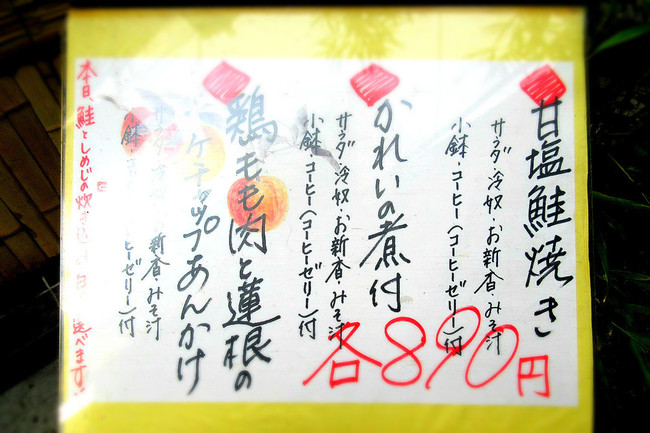 甘塩鮭焼き
サラダ・冷奴・お新香・みそ汁
小鉢・コーヒー(コーヒーゼリー)付
かれいの煮付
サラダ・冷奴・お新香・みそ汁
小鉢・コーヒー(コーヒーゼリー)付
鶏もも肉と蓮根の
ケチャップあんかけ
サラダ・冷奴・お新香・みそ汁
小鉢・コーヒー(コーヒーゼリー)付
各890円
本日、鮭としめじの炊き込 選べます!